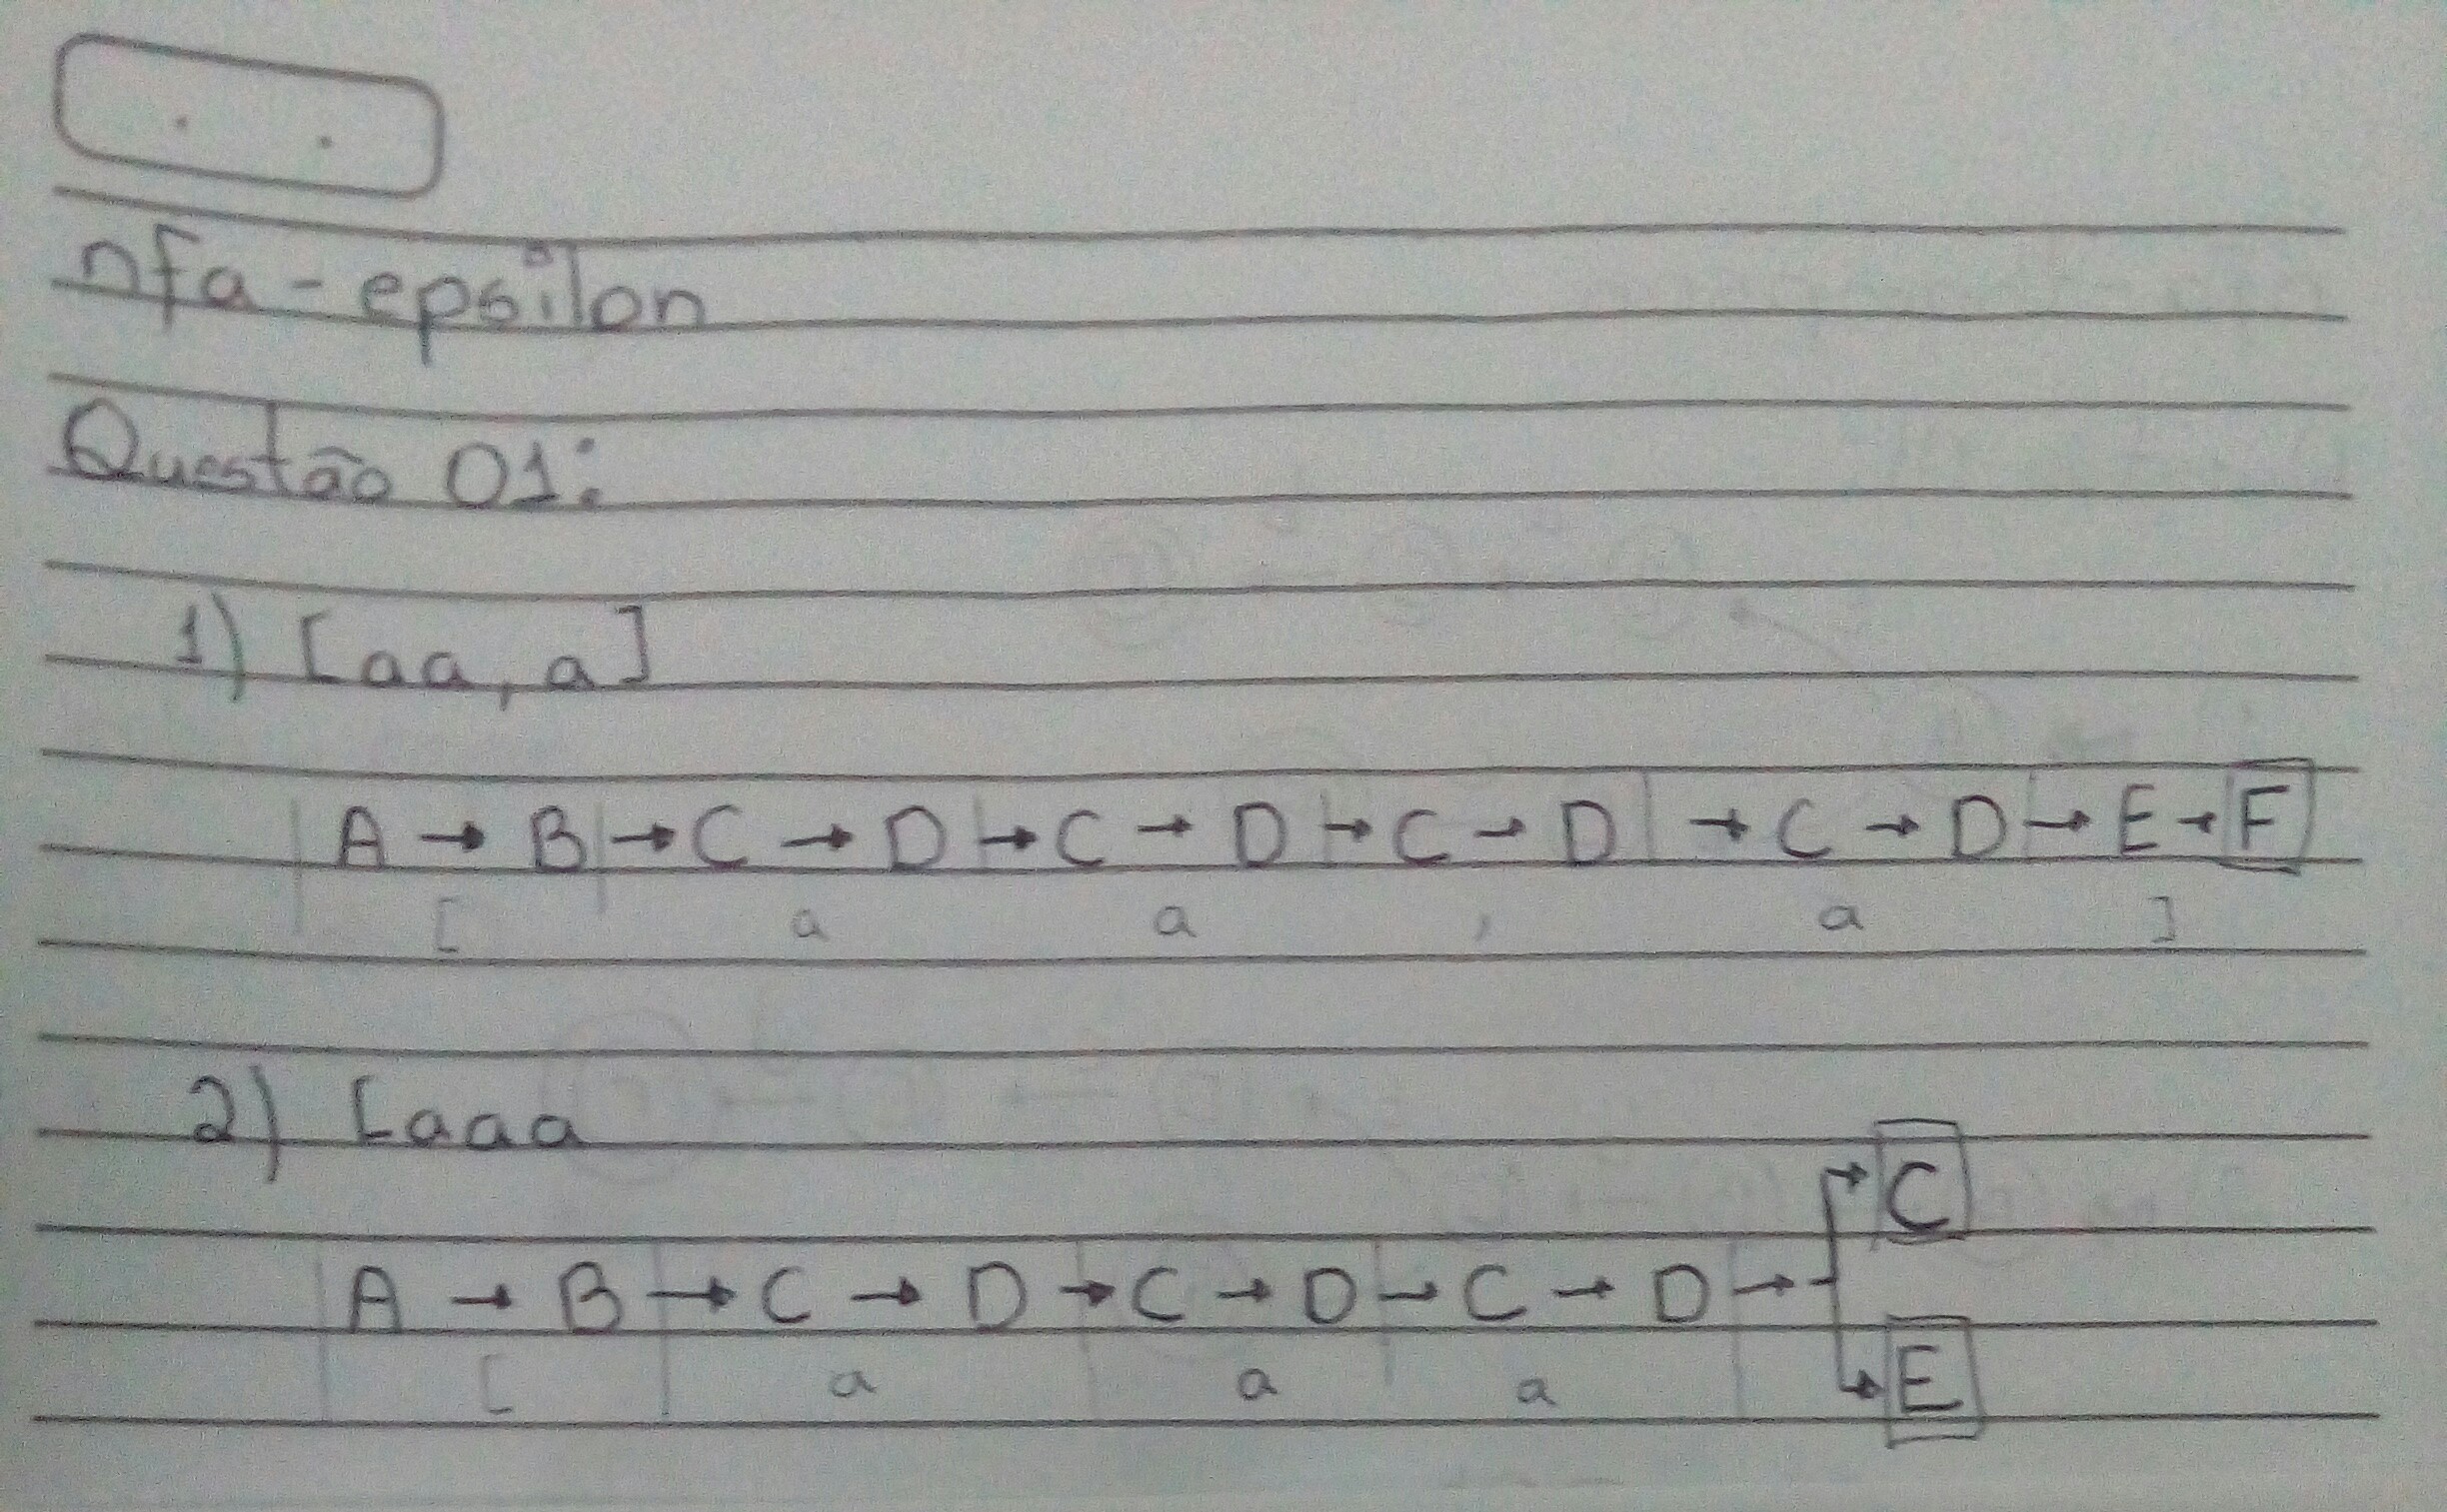 nfa-epsilon
Questão 01:
1) [aa, a]
A → B → C → D → C → D → C → D → C → D → E → F
[ a a , a ]
2) [aaa
C
A → B → C → D → C → D → C → D →
E
[ a a a